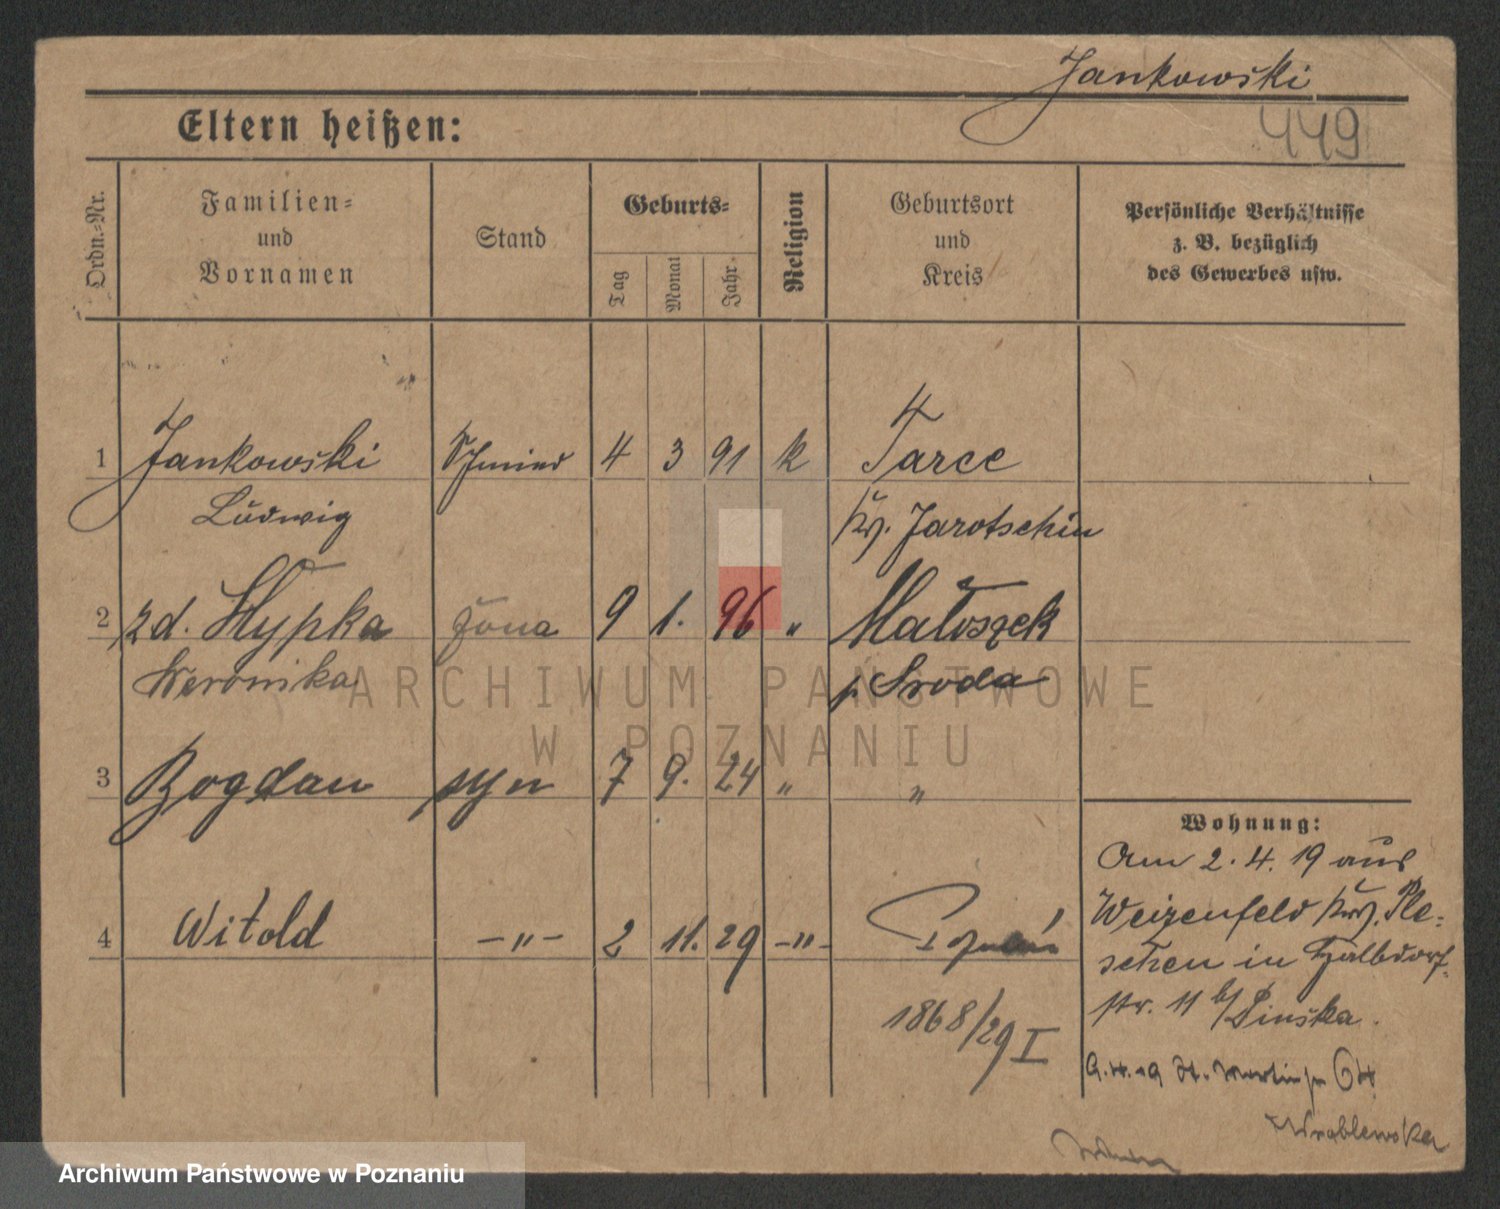 Jankowski
449
Eltern heißen:
Ordn.-Nr.
Familien-
und
Vornamen
Stand
Geburts-
Tag
Monat
Jahr
Religion
Geburtsort
und
Kreis
Persönliche Verhältnisse
z. B. bezüglich
des Gewerbes usw.
1 Jankowski Schmied 4 3 91 k Tarce
Ludwig Kr. Jarotschin
2 zd. Hypka żona 9 1. 96 "
Weronika p. Sroda
3 Bogdan syn 7 9. 24 " "
4 Witold -"- 2 11. 29 -"-
1868/29 I
Wohnung:
Am 2. 4. 19 aus
Weizenfeld Krs. Ple-
schen in Halbdorf-
str. 11 b/ Pinska.
St. Martin
Wroblewska
ARCHIWUM PAŃSTWOWE
W POZNANIU
Archiwum Państwowe w Poznaniu